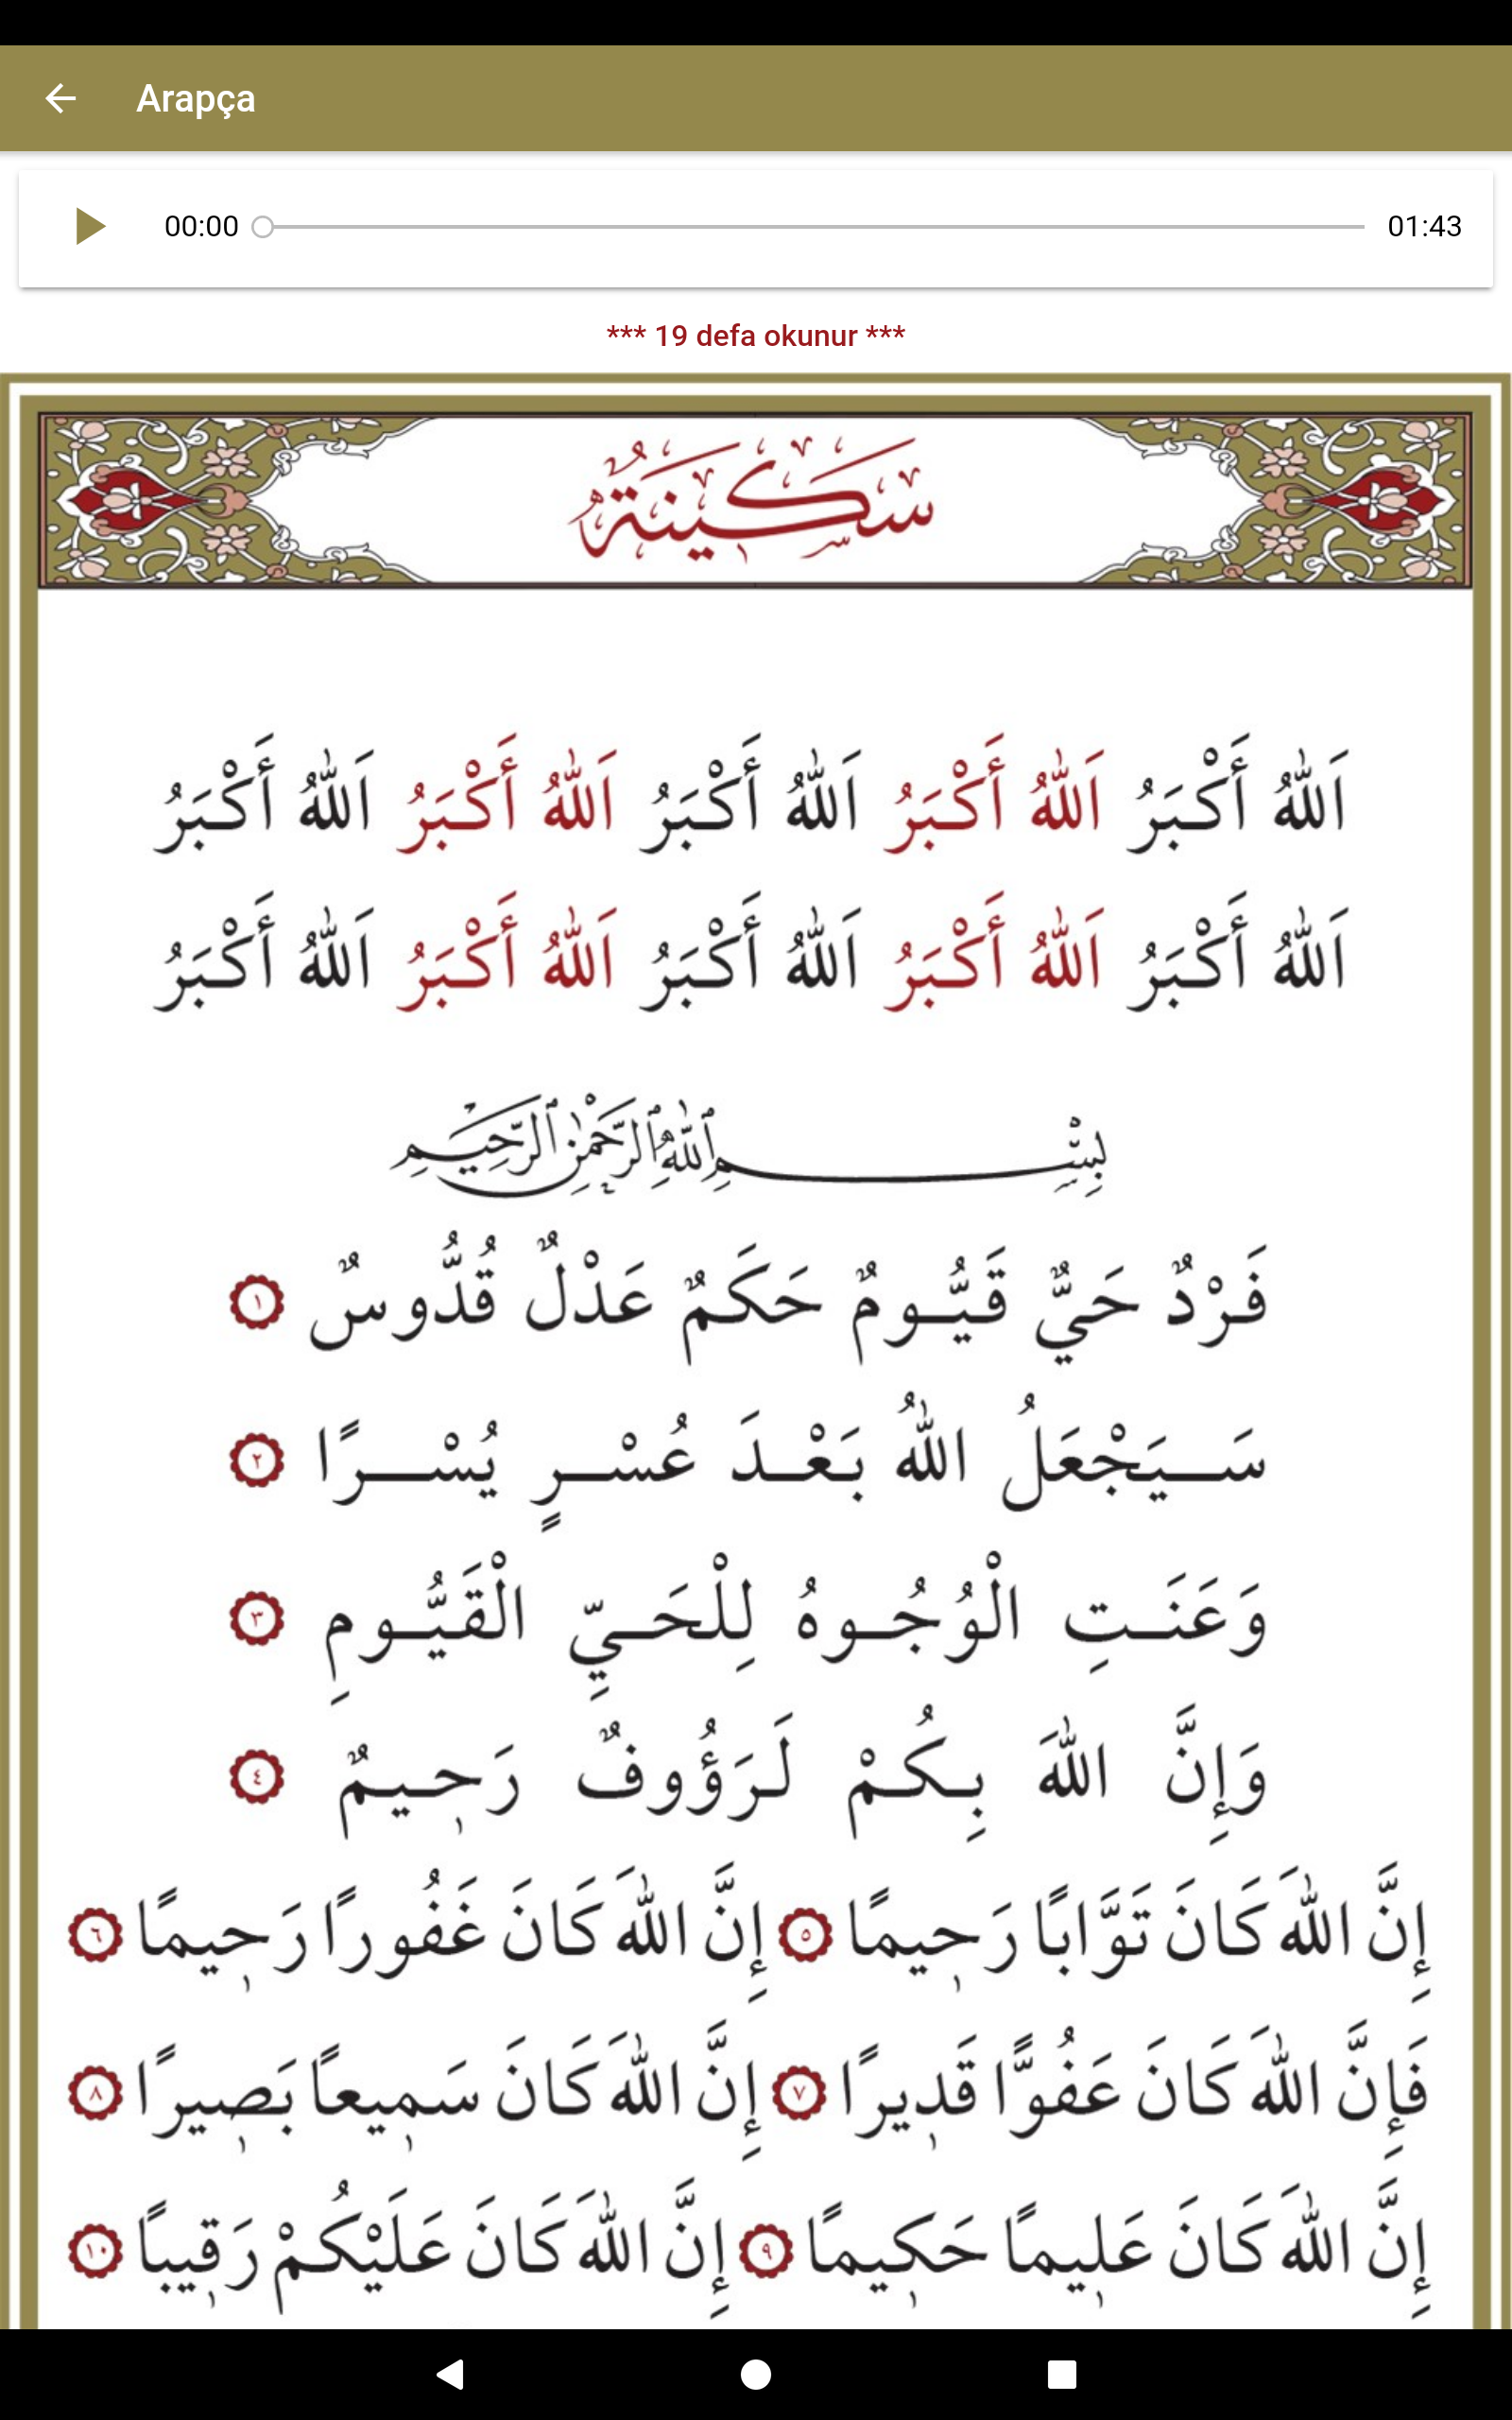 Arapça
00:00 01:43
*** 19 defa okunur ***
سَكِينَةٌ
اَللّٰهُ أَكْبَرُ اَللّٰهُ أَكْبَرُ اَللّٰهُ أَكْبَرُ اَللّٰهُ أَكْبَرُ اَللّٰهُ أَكْبَرُ
اَللّٰهُ أَكْبَرُ اَللّٰهُ أَكْبَرُ اَللّٰهُ أَكْبَرُ اَللّٰهُ أَكْبَرُ اَللّٰهُ أَكْبَرُ
بِسْمِ ٱللّٰهِ ٱلرَّحْمٰنِ ٱلرَّحِيمِ
فَرْدٌ حَيٌّ قَيُّومٌ حَكَمٌ عَدْلٌ قُدُّوسٌ ١
سَيَجْعَلُ اللّٰهُ بَعْدَ عُسْرٍ يُسْرًا ٢
وَعَنَتِ الْوُجُوهُ لِلْحَيِّ الْقَيُّومِ ٣
وَإِنَّ اللّٰهَ بِكُمْ لَرَؤُوفٌ رَحِيمٌ ٤
إِنَّ اللّٰهَ كَانَ تَوَّابًا رَحِيمًا ٥ إِنَّ اللّٰهَ كَانَ غَفُورًا رَحِيمًا ٦
فَإِنَّ اللّٰهَ كَانَ عَفُوًّا قَدِيرًا ٧ إِنَّ اللّٰهَ كَانَ سَمِيعًا بَصِيرًا ٨
إِنَّ اللّٰهَ كَانَ عَلِيمًا حَكِيمًا ٩ إِنَّ اللّٰهَ كَانَ عَلَيْكُمْ رَقِيبًا ١٠